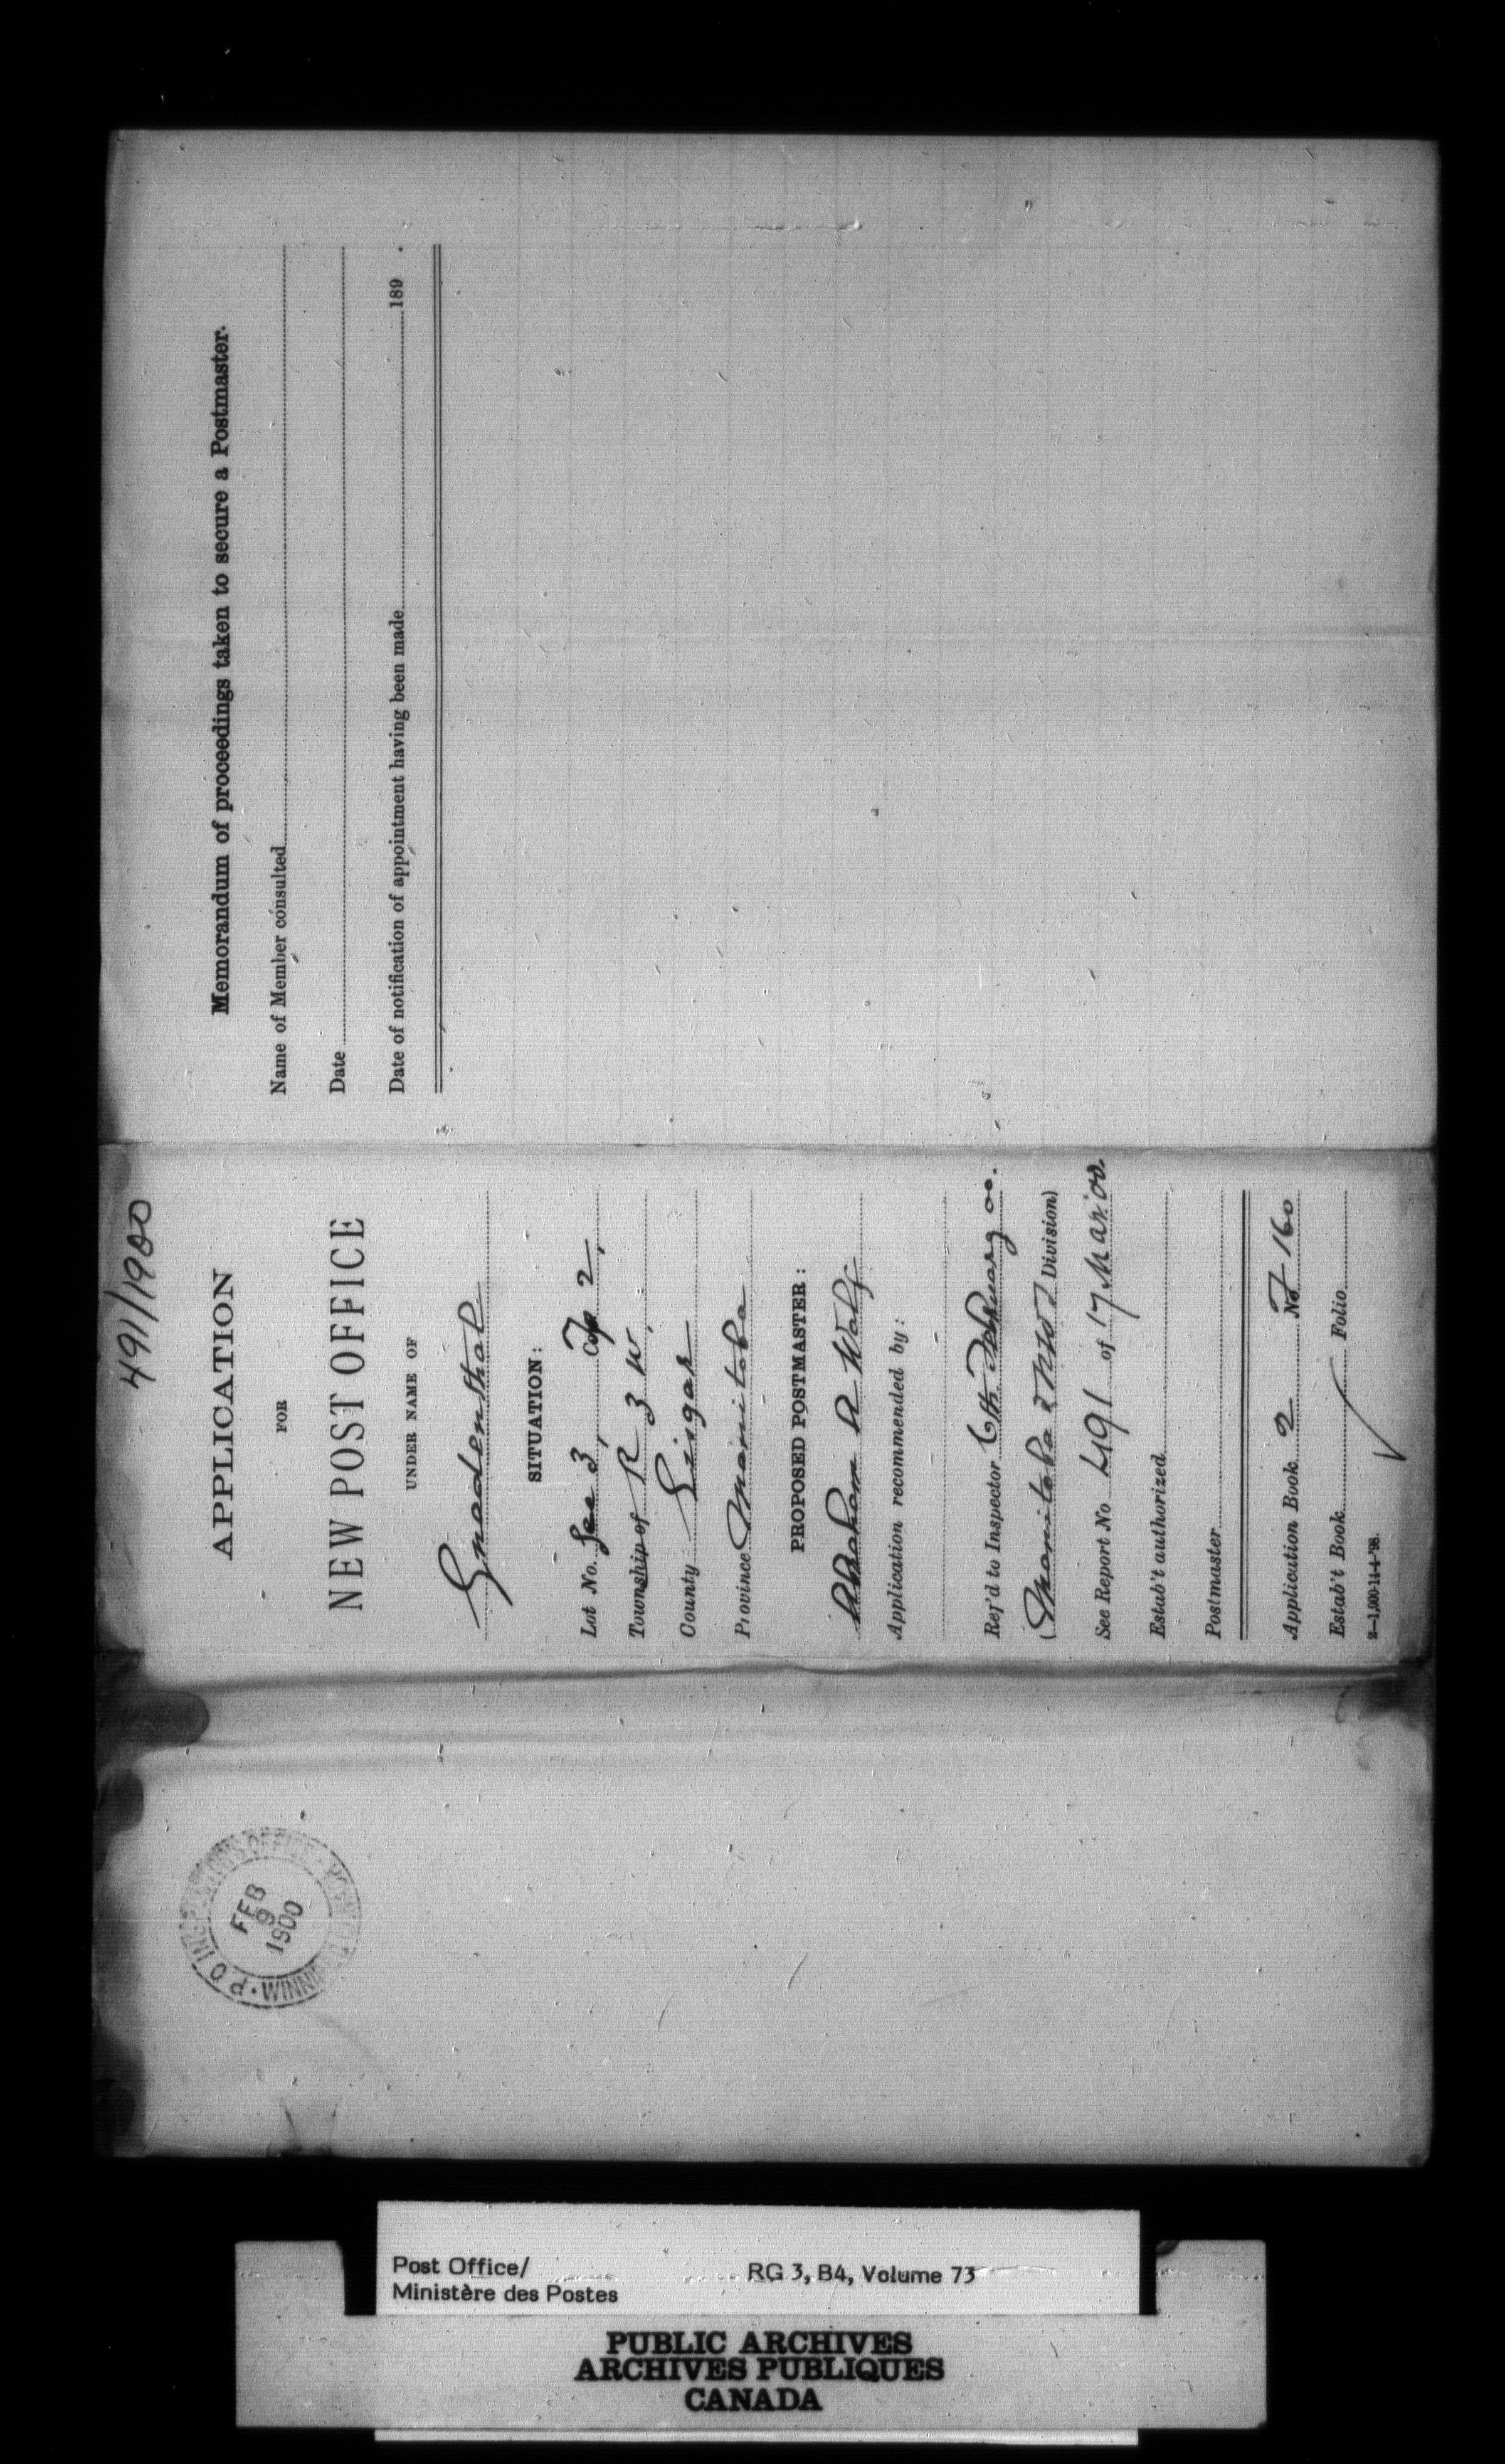 491/1900
APPLICATION
FOR
NEW POST OFFICE
UNDER NAME OF
Gnadenthal
SITUATION:
Lot No. Sec 3, Tp 2,
Township of R 3 W,
County Lisgar
Province Manitoba
PROPOSED POSTMASTER:
Abraham R Wolf
Application recommended by:
Ref'd to Inspector 6th February 00.
(Manitoba & NW Division)
See Report No 491 of 17 Mar '00.
Estab't authorized
Postmaster
Application Book 2 No 160
Estab't Book Folio
2—1,000-11-4-'98.
Memorandum of proceedings taken to secure a Postmaster.
Name of Member consulted
Date
Date of notification of appointment having been made 189 .
P.O INSPECTOR'S OFFICE
WINNIPEG
FEB
9
1900
Post Office/
Ministère des Postes
RG 3, B4, Volume 73
PUBLIC ARCHIVES
ARCHIVES PUBLIQUES
CANADA